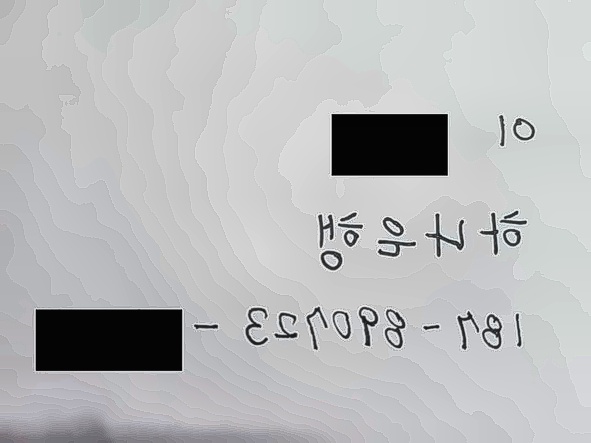 이
하나은행
187-890723-